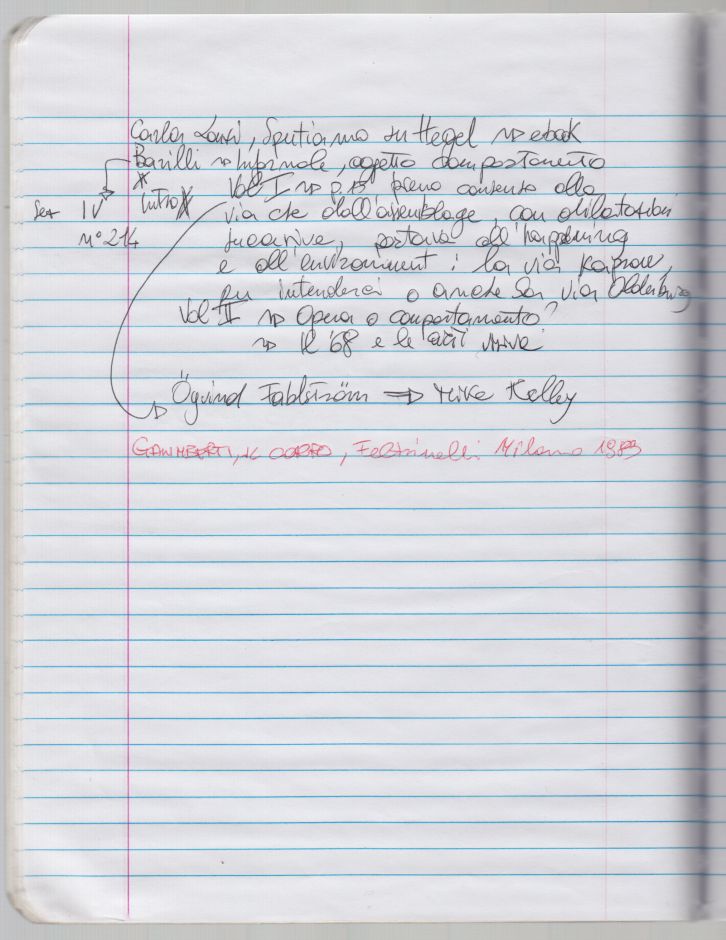 Carla Lonzi, Sputiamo su Hegel ⇝ ebook
Barilli ⇝ Informale, oggetto comportamento
Intro Vol I ⇝ p.15 pieno consenso alla
Set IV via che dall'assemblage, con dilatazioni
n° 214 , portava all'happening
e all'environment: la via Kaprow,
per intenderci o anche la via Oldenburg
Vol II ⇝ Opera o comportamento?
⇝ Il '68 e le arti visive
Öyvind Fahlström ⇒ Mike Kelley
, IL CORPO, Feltrinelli Milano 1983